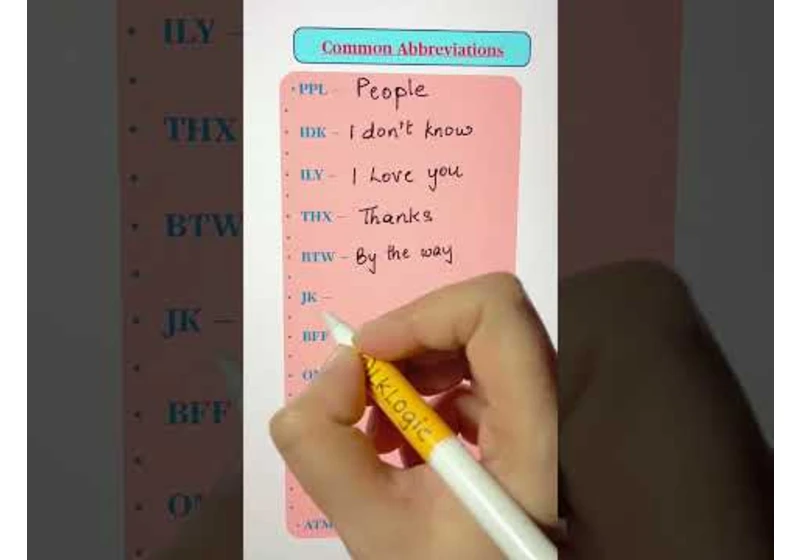 Common Abbreviations
PPL - People
IDK - I don't know
ILY - I Love you
THX - Thanks
BTW - By the way
JK -
BFF
ATM
ILY -
THX
BTW
JK -
BFF